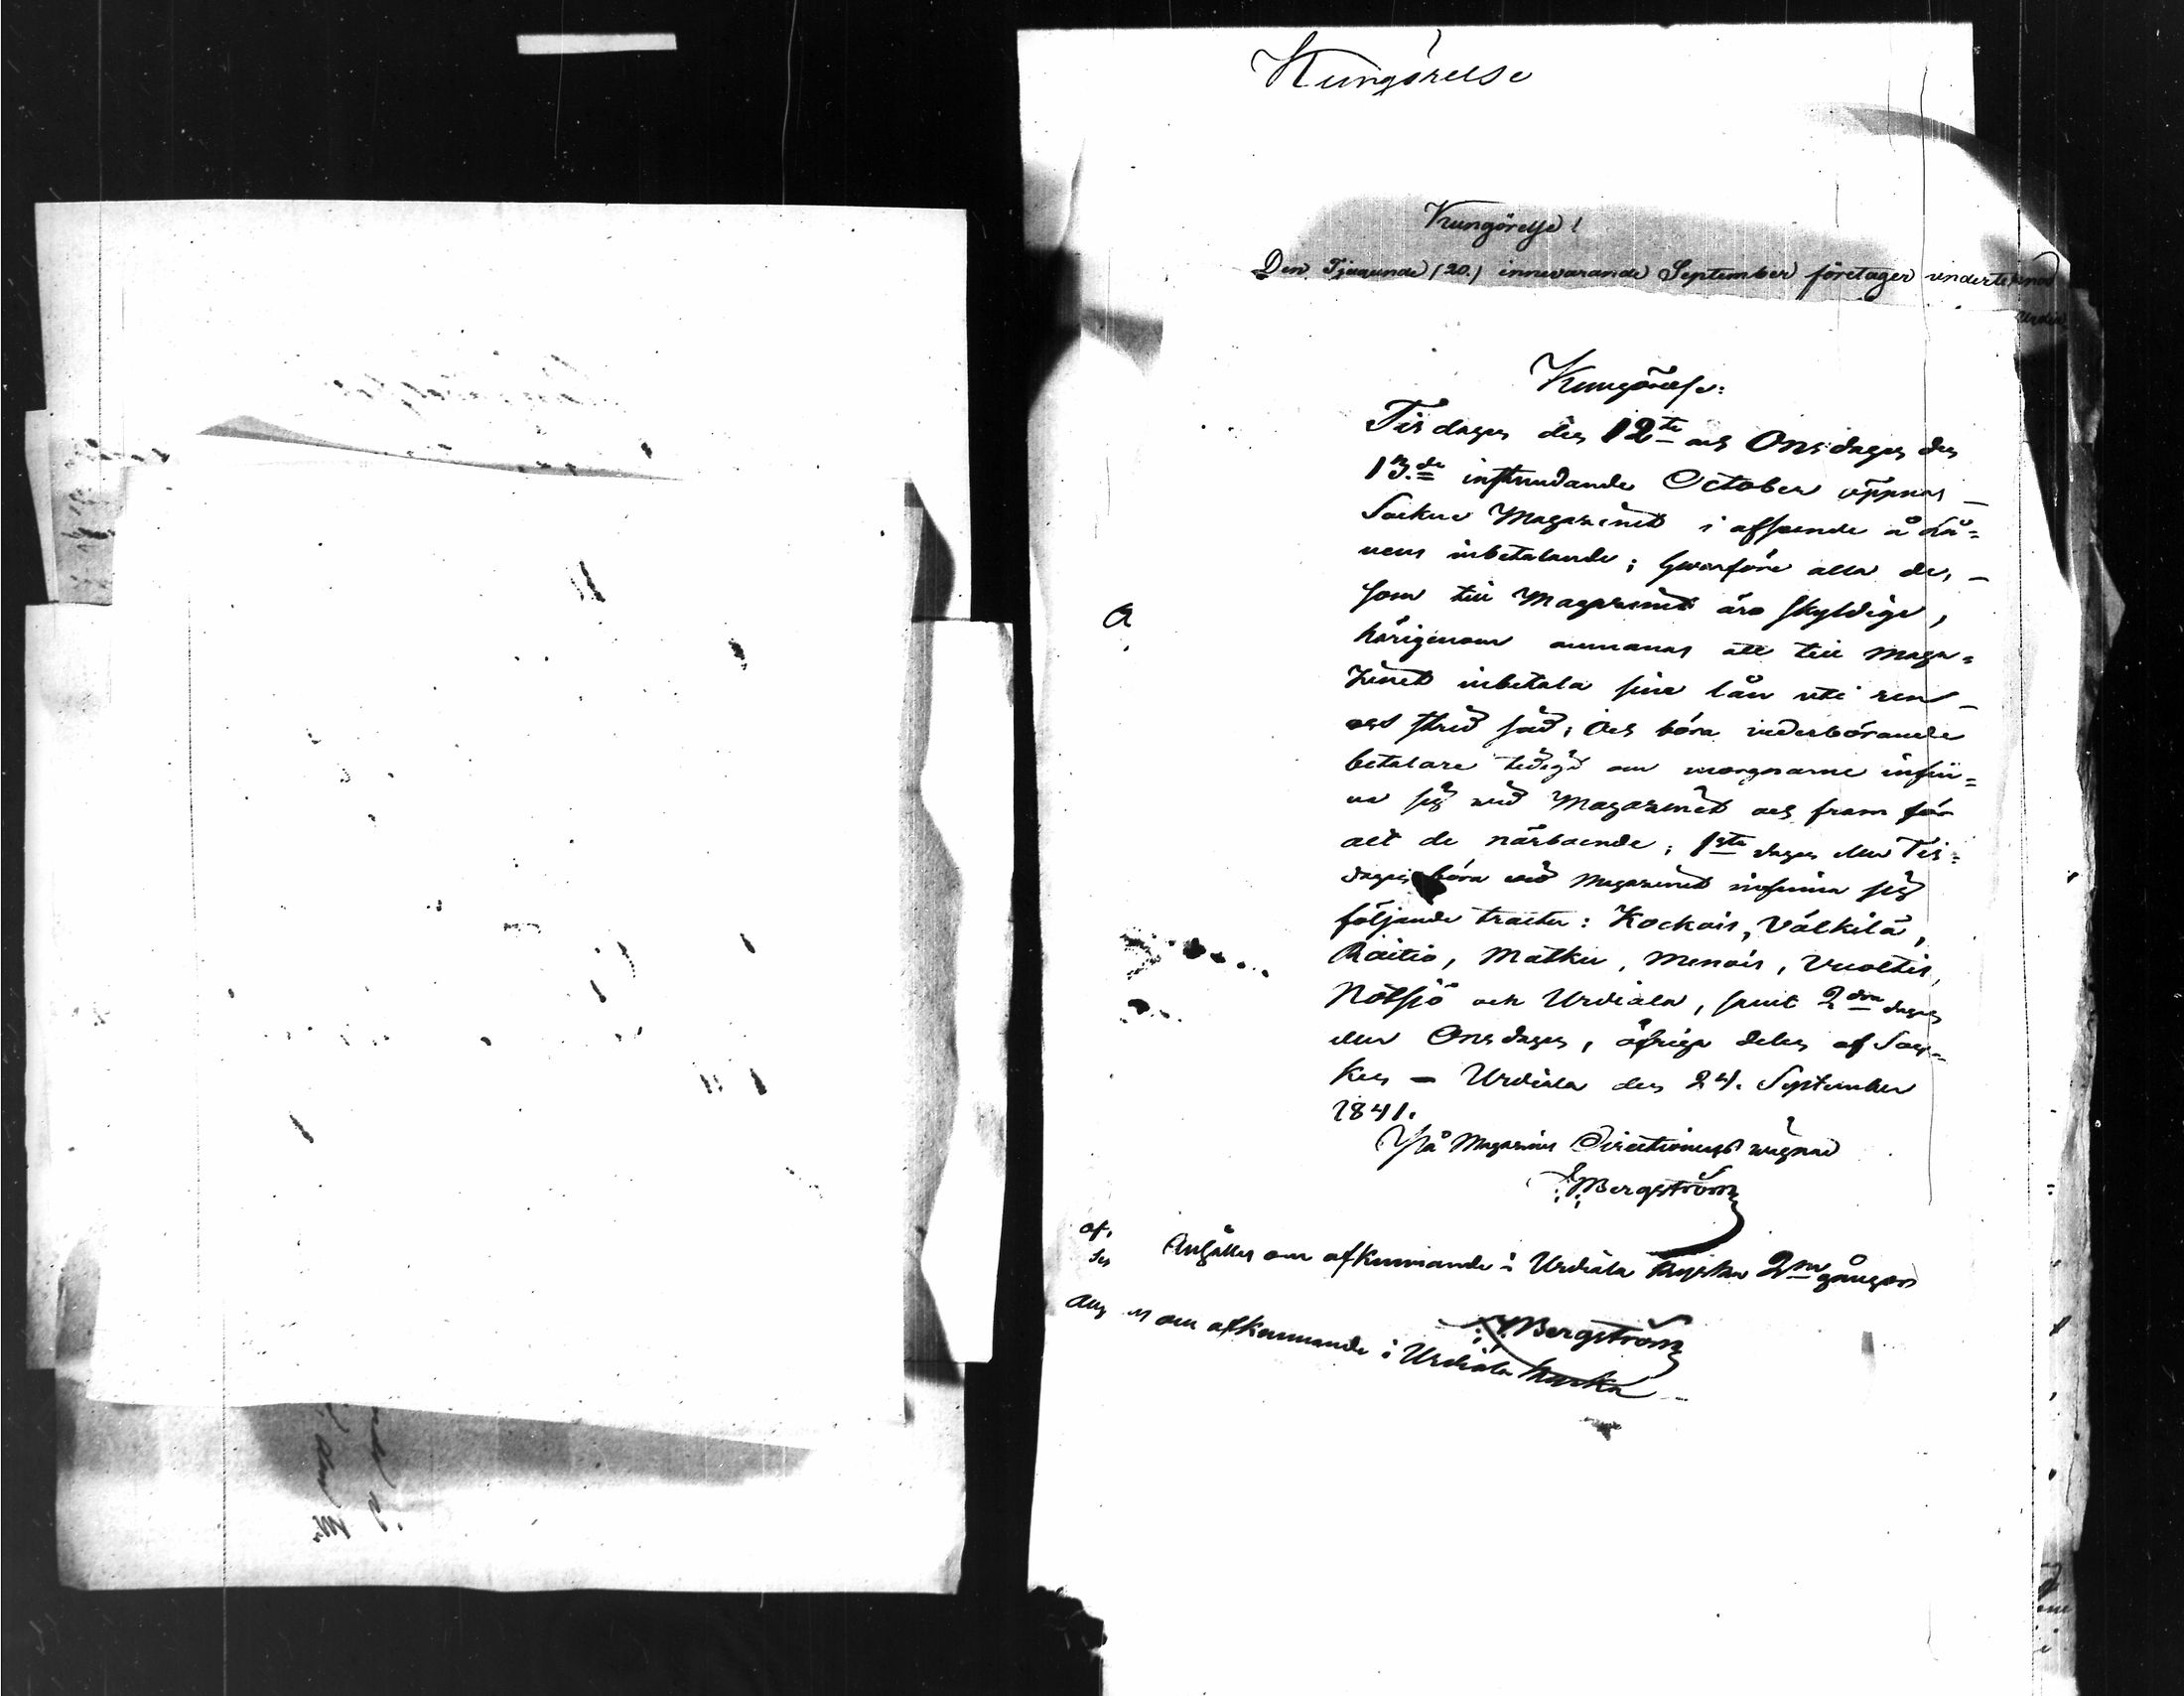 Kungörelse
Kungörelse!
Den Tjugunde (20.) innevarande September företager undertecknad
Kungörelse:
Tisdagen den 12te och Onsdagen den
13.de instundande October öppnas
Sockne Magazinet i afseende å Lå=
nens inbetalande; hvarföre alla de,
som till Magazinet äro skyldige,
härigenom anmanas att till Maga=
zinet inbetala sine lån uti ren
och strid säd; Och böra vederbörande
betalare tidigt om morgnarne infin=
na sig vid Magazinet och fram för
allt de närboende; 1sta dagen eller Tis=
dagen böra vid Magazinet infinna sig
följande tracter: Kockois, Välkilä,
Raitio, Matku, Menois, Vuoltis,
Nötsjö och Urdiala, samt 2dra dagen
eller Onsdagen, öfriga delen af Soc=
ken – Urdiala den 24. September
1841.
På Magazins Directionens vägnar
Bergström
Anhålles om afkunnande i Urdiala kyrka 2ra gången
Bergström
om afkunnande i Urdiala kyrka